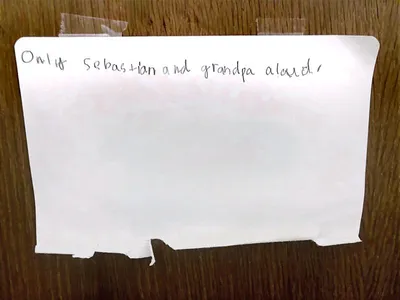 Only Sebastian and grandpa aloud,